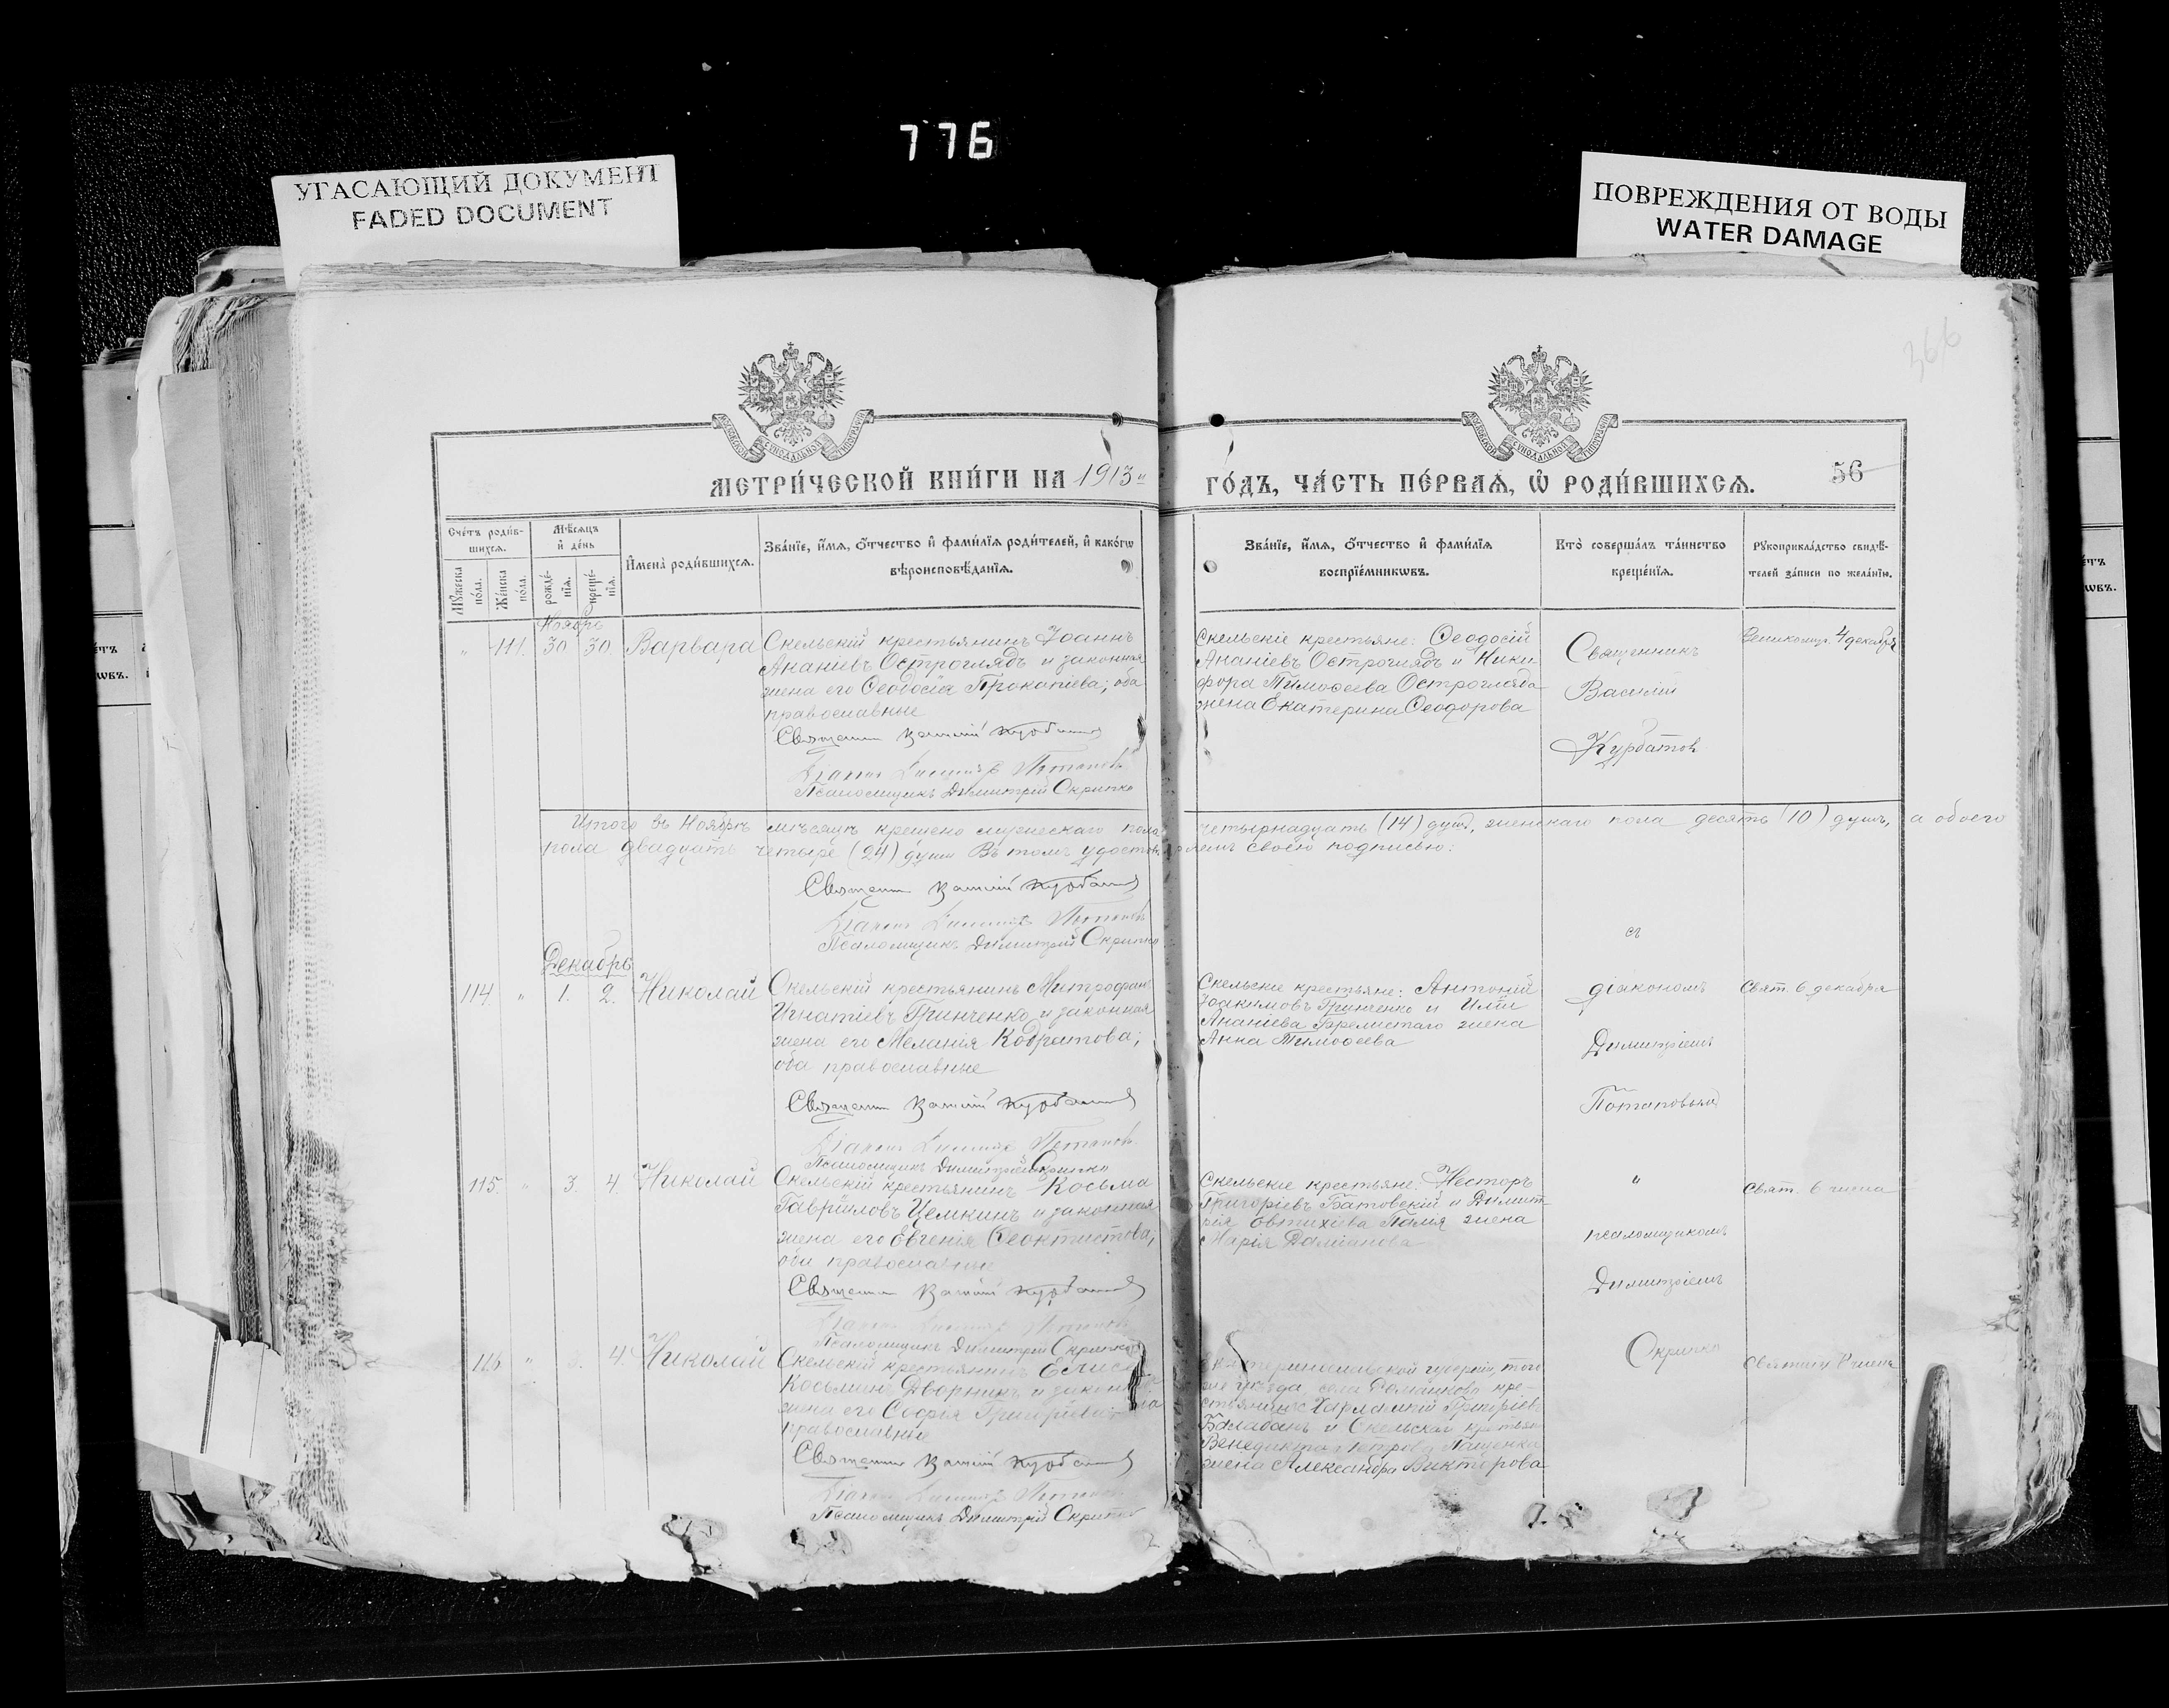 776
УГАСАЮЩИЙ ДОКУМЕНТ
FADED DOCUMENT
ПОВРЕЖДЕНИЯ ОТ ВОДЫ
WATER DAMAGE
366
МЕТРИ́ЧЕСКОЙ КНИ́ГИ НА 1913й
ГО́ДЪ, ЧА́СТЬ ПЕ́РВАѦ, Ѡ҆ РОДИ́ВШИХСѦ.
56
Сче́тъ роди́в-
шихсѧ.
Мѣ́сѧцъ
и҆ де́нь
Мꙋ́жеска
по́ла.
Же́нска
по́ла.
рожде́-
нїѧ.
креще́-
нїѧ.
И҆мена̀ роди́вшихсѧ.
Зва́нїе, и҆́мѧ, ѻ҆́тчество и҆ фами́лїѧ роди́телей, и҆ како́гѡ
вѣроисповѣ́данїѧ.
Зва́нїе, и҆́мѧ, ѻ҆́тчество и҆ фами́лїѧ
воспрїе́мникѡвъ.
Кто̀ соверша́лъ та́инство
креще́нїѧ.
Рꙋкоприкла́дство свидѣ́-
телей за́писи по жела́нїю.
Ноябрь
" 111. 30 30. Варвара
Скельскій крестьянинъ Іоаннъ
Ананіевъ Остроглядъ и законная
жена его Ѳеодосія Прокопіева; оба
православные
Священни Василій Курбатовъ
Діаконъ Димитрій Потаповъ
Псаломщикъ Димитрій Скрипко
Скельскіе крестьяне: Ѳеодосій
Ананіевъ Остроглядъ и Ники-
фора Тимоѳеева Остроглада
жена Екатерина Ѳеодорова
Священникъ
Василій
Курбатов
Великомуч. 4 декабря
Итого въ Ноябрѣ мѣсяцѣ крещено мужескаго пола четырнадцать (14) душъ, женскаго пола десять (10) душъ, а обоего
пола двадцать четыре (24) души Въ томъ удостовѣряемъ своею подписью:
Священни Василій Курбатовъ
Діаконъ Димитрій Потаповъ
Псаломщикъ Димитрій Скрипко
Декабрь
114. " 1. 2. Николай
Скельскій крестьянинъ Митрофанъ
Игнатіевъ Гринченко и законная
жена его Меланія Кодратова;
оба православные
Священни Василій Курбатовъ
Діаконъ Димитрій Потаповъ
Псаломщикъ Димитрій Скрипко
Скельскіе крестьяне: Антоній
Іоакимовъ Гринченко и Иліи
Ананіева жена
Анна Тимоѳеева
съ
діакономъ
Димитріемъ
Потаповымъ
Свят. 6 декабря
115. " 3. 4. Николай
Скельскій крестьянинъ Косьма
Гавріиловъ Цемкинъ и законная
жена его Евгенія Ѳеоктистова;
оба православные
Священни Василій Курбатовъ
Діаконъ Димитрій Потаповъ
Псаломщикъ Димитрій Скрипко
Скельскіе крестьяне: Несторъ
Григоріевъ Батовскій и Димит-
рія Евтихіева жена
Марія Даміанова
"
псаломщикомъ
Димитріемъ
Скрипко
Свят. 6 числа
116 " 3. 4. Николай
Скельскій крестьянинъ
Косьминъ Дворникъ и законная
жена его Софія Григоріева;
православніе
Священни Василій Курбатовъ
Діаконъ Димитрій Потаповъ
Псаломщикъ Димитрій Скрипко
Екатеринославской губерніи, того
же уѣзда, села Романково кре-
стьянинъ Харлампій Григоріевъ
Балабанъ и Скельскаго крестьян
Венедикта Петрова Пащенка
жена Александра Викторова